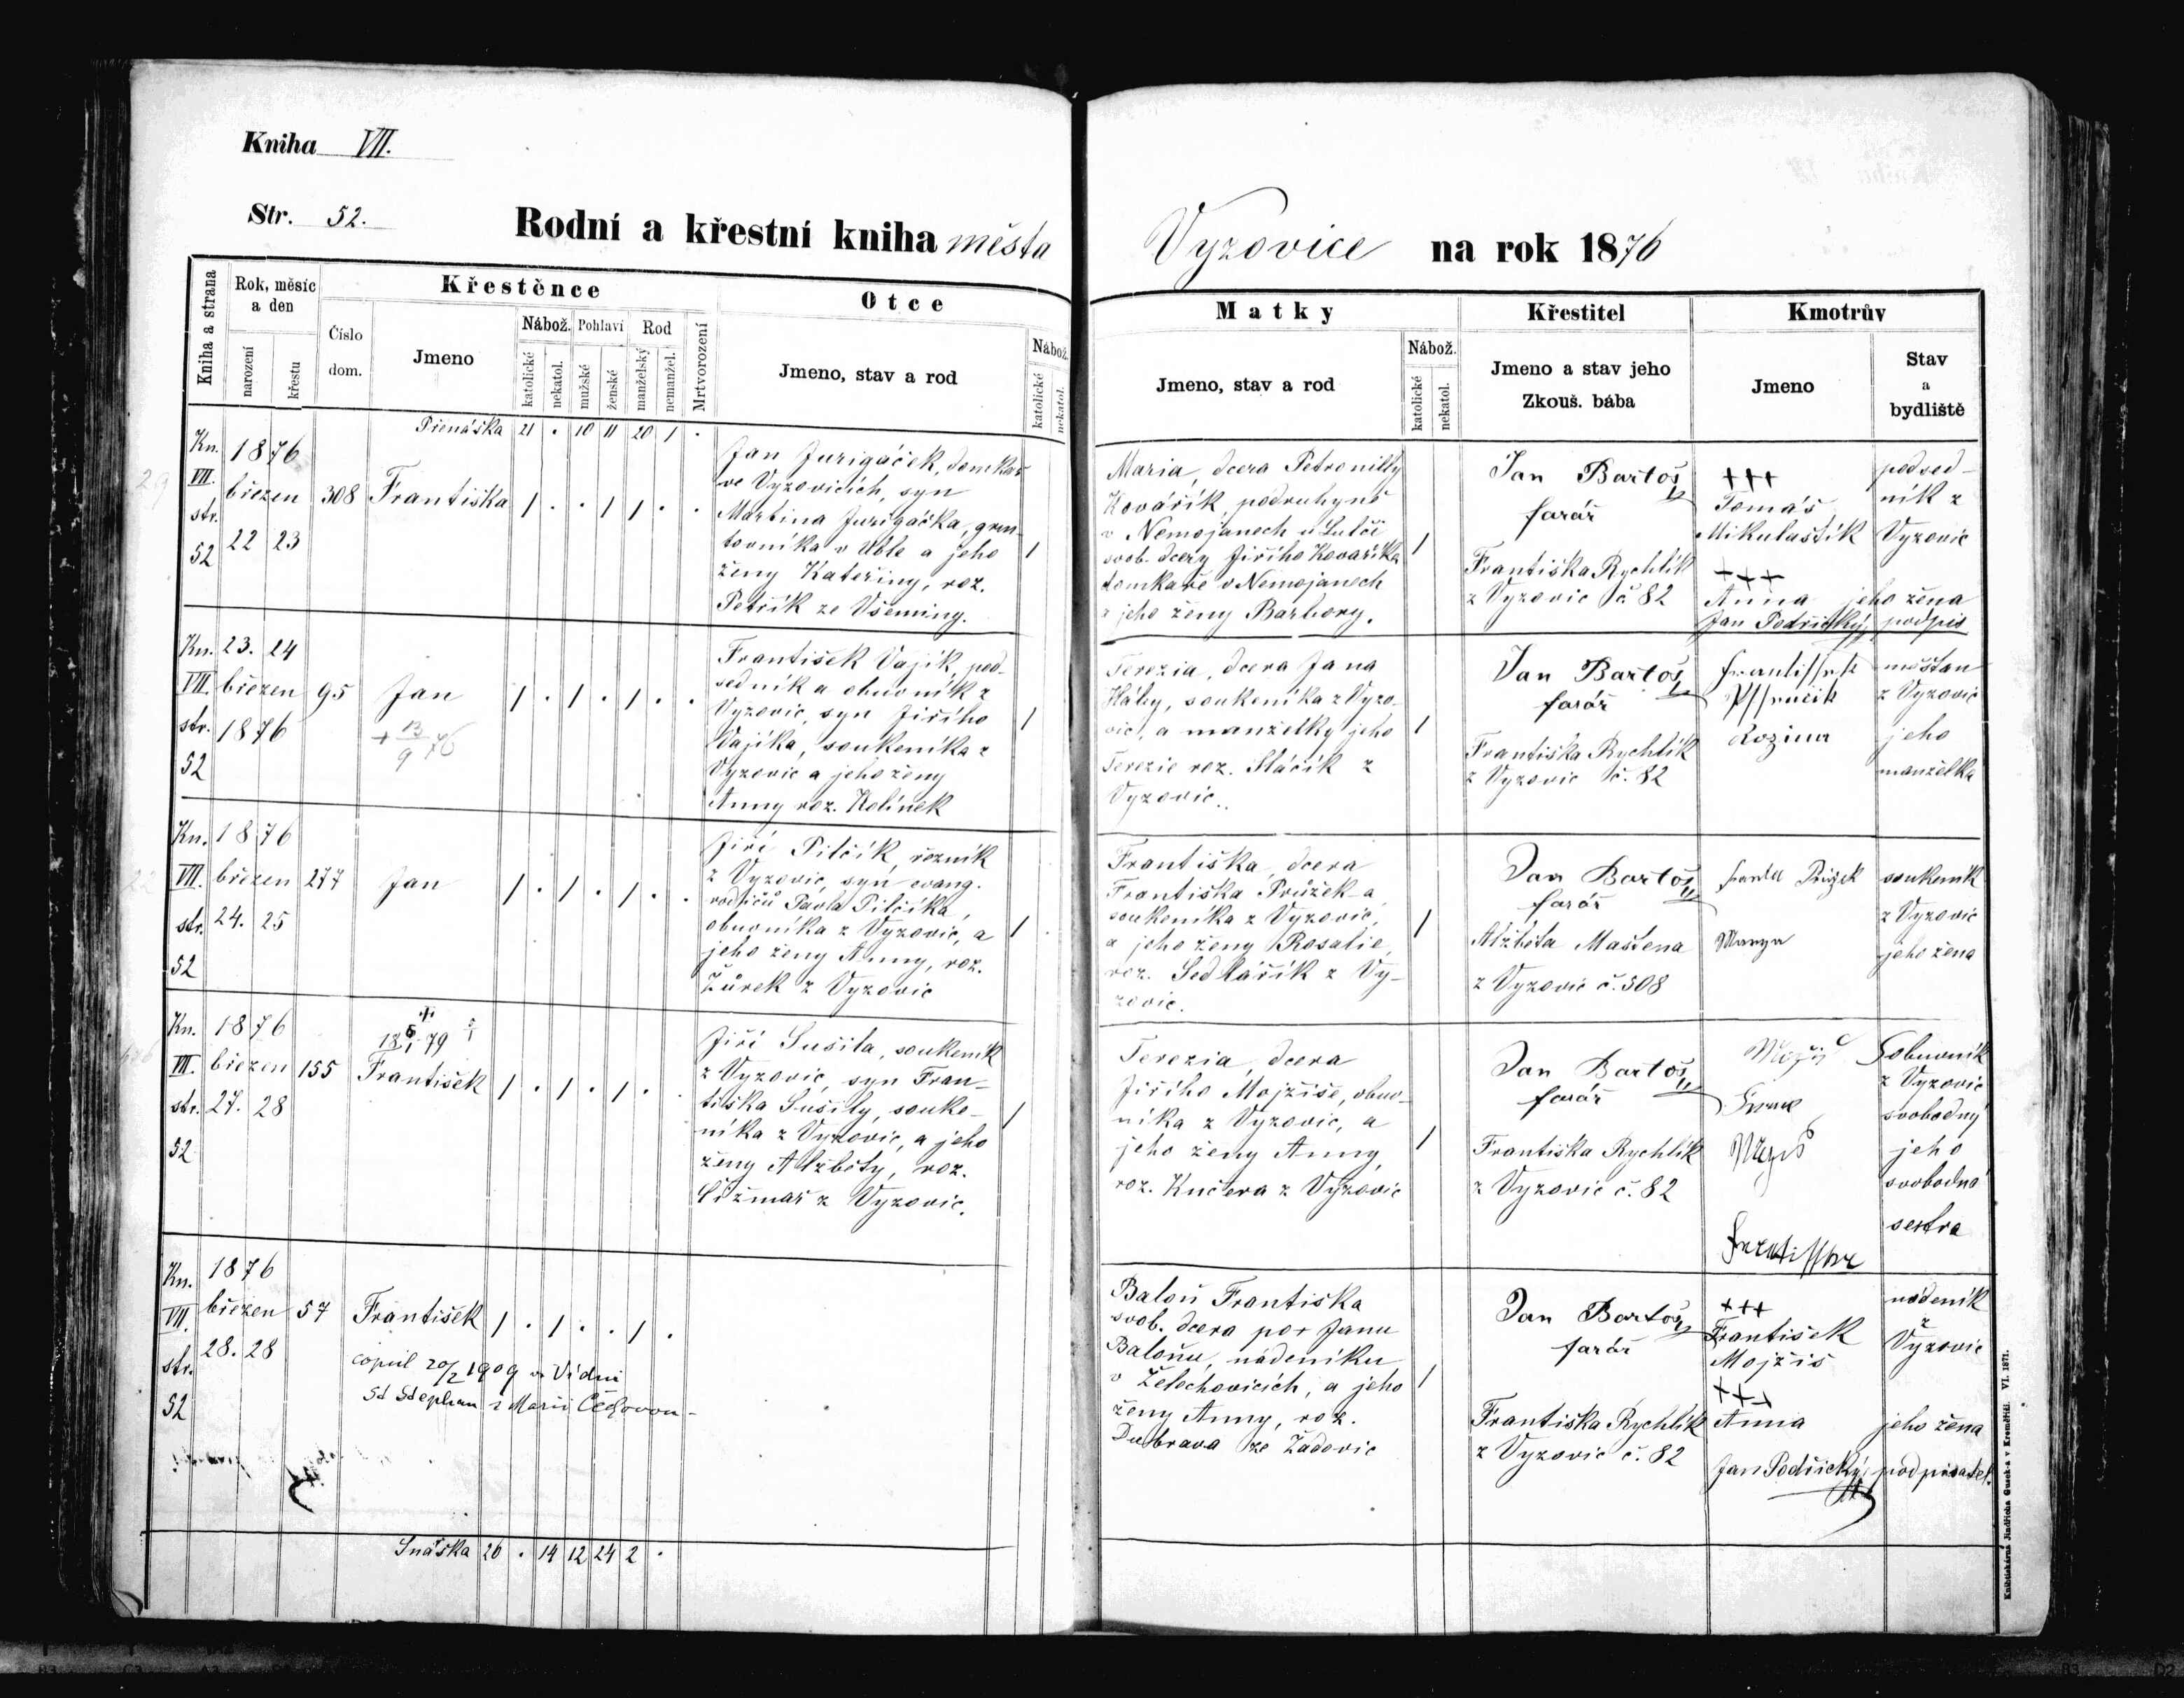 Kniha VII.
Str. 52.
Rodní a křestní kniha města Vyzovice na rok 1876
Kniha a strana
Rok, měsíc
a den
narození
křestu
Křestěnce
Číslo
dom.
Jmeno
Nábož.
katolické
nekatol.
Pohlaví
mužské
ženské
Rod
manželský
nemanžel.
Mrtvorození
Otce
Jmeno, stav a rod
Nábož.
katolické
nekatol.
Matky
Jmeno, stav a rod
Nábož.
katolické
nekatol.
Křestitel
Jmeno a stav jeho
Zkouš. bába
Kmotrův
Jmeno
Stav
a
bydliště
Přenáška 21 . 10 11 20 1 .
Kn.
VII.
str.
52
1876
březen
22 23
308
Františka
1 . . 1 1 . .
Jan Jurigáček, domkař
ve Vyzovicích, syn
Martina Jurigáčka, grun-
tovníka v Uble a jeho
ženy Kateřiny, roz.
Petřík ze Všeminy.
1
Maria, dcera Petronilly
Kovářík, podruhyně
v Nemojanech u Lulče
svob. dcery Jiřího Kovaříka
domkaře v Nemojanech
a jeho ženy Barbory.
1
Jan Bartoš
farář
Františka Rychlík
z Vyzovic č. 82
+++
Tomáš
Mikulaštík
+++
Anna
Jan Podřický,
podsed-
ník z
Vyzovic
jeho žena
podpis
Kn.
VII.
str.
52
23. 24
březen
1876
95
Jan
+ 13/9 76
1 . 1 . 1 . .
František Vajík, pod-
sedník a obuvník z
Vyzovic, syn Jiřího
Vajíka, soukeníka z
Vyzovic a jeho ženy
Anny roz. Kolínek
1
Terezia, dcera Jana
Háby, soukeníka z Vyzo-
vic, a manželky jeho
Terezie roz. Sláčík z
Vyzovic.
1
Jan Bartoš
farář
Františka Rychlík
z Vyzovic č. 82
Rozina
měštan
z Vyzovic
jeho
manželka
Kn.
VII.
str.
52
1876
březen
24. 25
277
Jan
1 . 1 . 1 . .
Jiří Pilčík, řezník
z Vyzovic, syn evang.
rodičů Pavla Pilčíka,
obuvníka z Vyzovic, a
jeho ženy Anny, roz.
Žůrek z Vyzovic
1
Františka, dcera
Františka Průžek-a
soukeníka z Vyzovic,
a jeho ženy Rosalie,
roz. Sedlářík z Vy-
zovic.
1
Jan Bartoš
farář
Alžběta Maštena
z Vyzovic č. 508
soukeník
z Vyzovic
jeho žena
Kn.
VII.
str.
52
1876
březen
27. 28
155
František
1 . 1 . 1 . .
Jiří Sušila, soukeník
z Vyzovic, syn Fran-
tiška Sušily, souke-
níka z Vyzovic, a jeho
ženy Alžběty, roz.
Čižmař z Vyzovic.
1
Terezia, dcera
Jiřího Mojžíše, obuv-
níka z Vyzovic, a
jeho ženy Anny,
roz. Kučera z Vyzovic
1
Jan Bartoš
farář
Františka Rychlík
z Vyzovic č. 82
obuvník
z Vyzovic
svobodný
jeho
svobodná
sestra
Kn.
VII.
str.
52
1876
březen
28. 28
57
František
1 . 1 . . 1 .
copul 20/2 1909 ve Vídni
St Stephan s Marií Čechovou
Baloň Františka
svob. dcera po + Janu
Baloňu, nádeníku
v Želechovicích, a jeho
ženy Anny, roz.
Dubrava ze Zadovic
1
Jan Bartoš
farář
Františka Rychlík
z Vyzovic č. 82
+++
František
Mojžiš
+++
Anna
Jan Podřický,
nádeník
z
Vyzovic
jeho žena
podpisatel.
Snáška 26 . 14 12 24 2 .
Knihtiskárna Jindřicha Gusek-a v Kroměříži. VI. 1871.